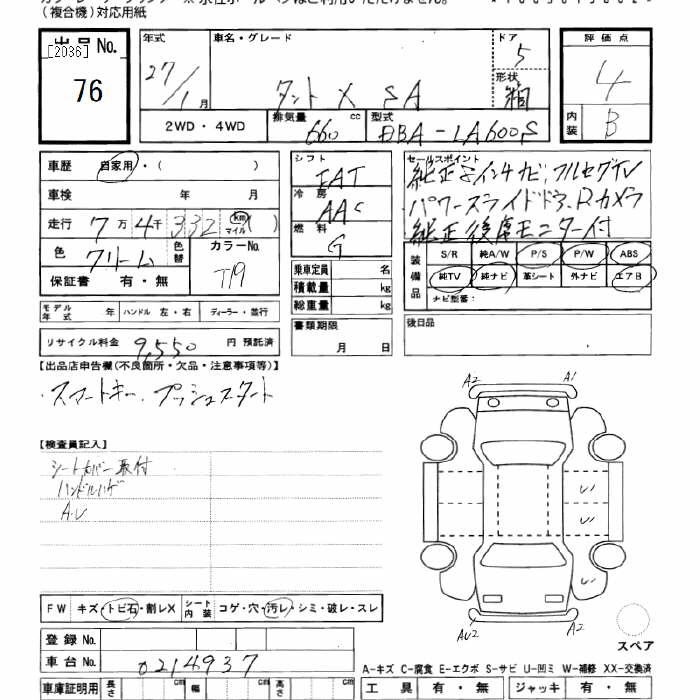 (複合機)対応用紙
出品No.
[2036]
76
年式
車名・グレード
ドア
27/1月
タント X SA
5
形状
箱
評価点
4
内装
B
2WD・4WD
排気量 cc
660
型式
DBA-LA600S
車歴
自家用・( )
車検 年 月
走行 7万4千332 km マイル ( )
色
クリーム
色替
カラーNo.
T19
保証書 有・無
シフト
FAT
冷房
AAC
燃料
G
乗車定員 名
積載量 kg
総重量 kg
書類期限
月 日
セールスポイント
純正8インチナビ、フルセグTV
パワースライドドア、Rカメラ
純正後席モニター付
装備品
S/R 純A/W P/S P/W ABS
純TV 純ナビ 革シート 外ナビ エアB
ナビ型番:
後日品
モデル年式 年 ハンドル 左・右 ディーラー・並行
リサイクル料金 9,550 円 預託済
【出品店申告欄(不良箇所・欠品・注意事項等)】
・スマートキー、プッシュスタート
【検査員記入】
シートカバー取付
ハンドルハゲ
A.U
A2 A1
U
U
U
AU2 A2
スペア
FW キズ・トビ石・割レX シート内装 コゲ・穴・汚レ・シミ・破レ・スレ
登録No.
車台No. 0214937
車庫証明用 長さ cm 幅 cm 高さ cm
A-キズ C-腐食 E-エクボ S-サビ U-凹ミ W-補修 XX-交換済
工具 有・無 ジャッキ 有・無